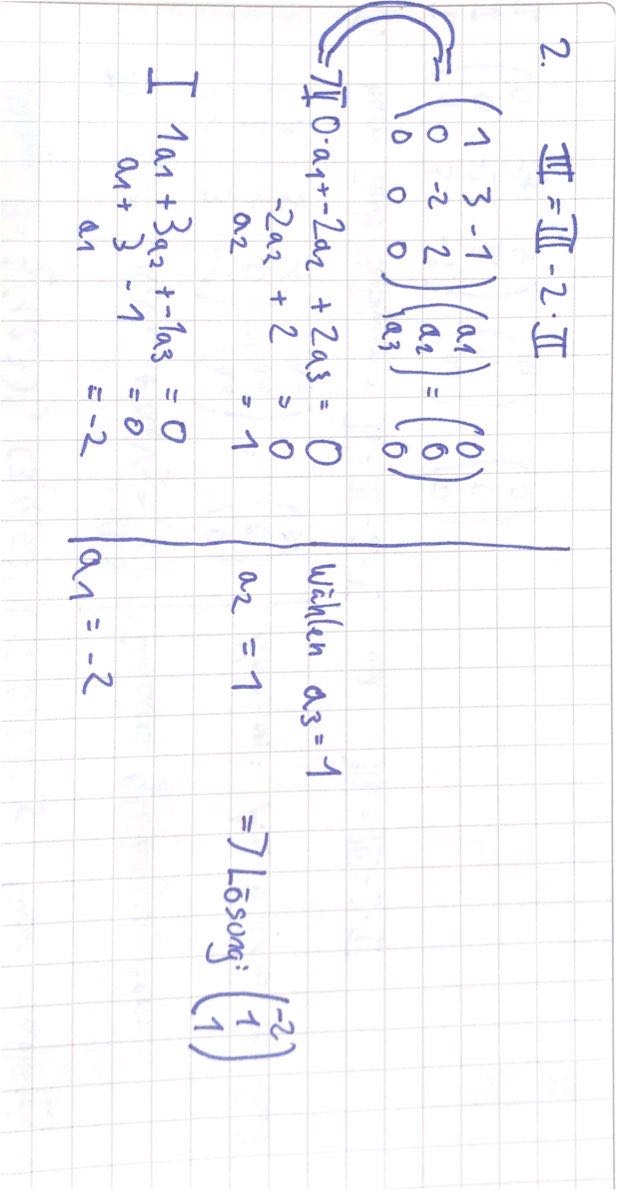 2. III = III - 2 · II
( 1 3 -1 ) ( a1 ) = ( 0 )
( 0 -2 2 ) ( a2 ) ( 0 )
( 0 0 0 ) ( a3 ) ( 0 )
=> II 0·a1 + -2a2 + 2a3 = 0
-2a2 + 2 = 0
a2 = 1
I 1a1 + 3a2 + -1a3 = 0
a1 + 3 - 1 = 0
a1 = -2
Wählen a3 = 1
a2 = 1
a1 = -2
=> Lösung: ( -2 )
( 1 )
( 1 )